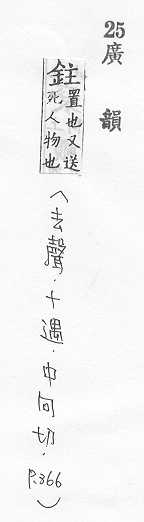 25
廣韻
鉒
置也又送
死人物也
(去聲.十遇.中句切.P.366)